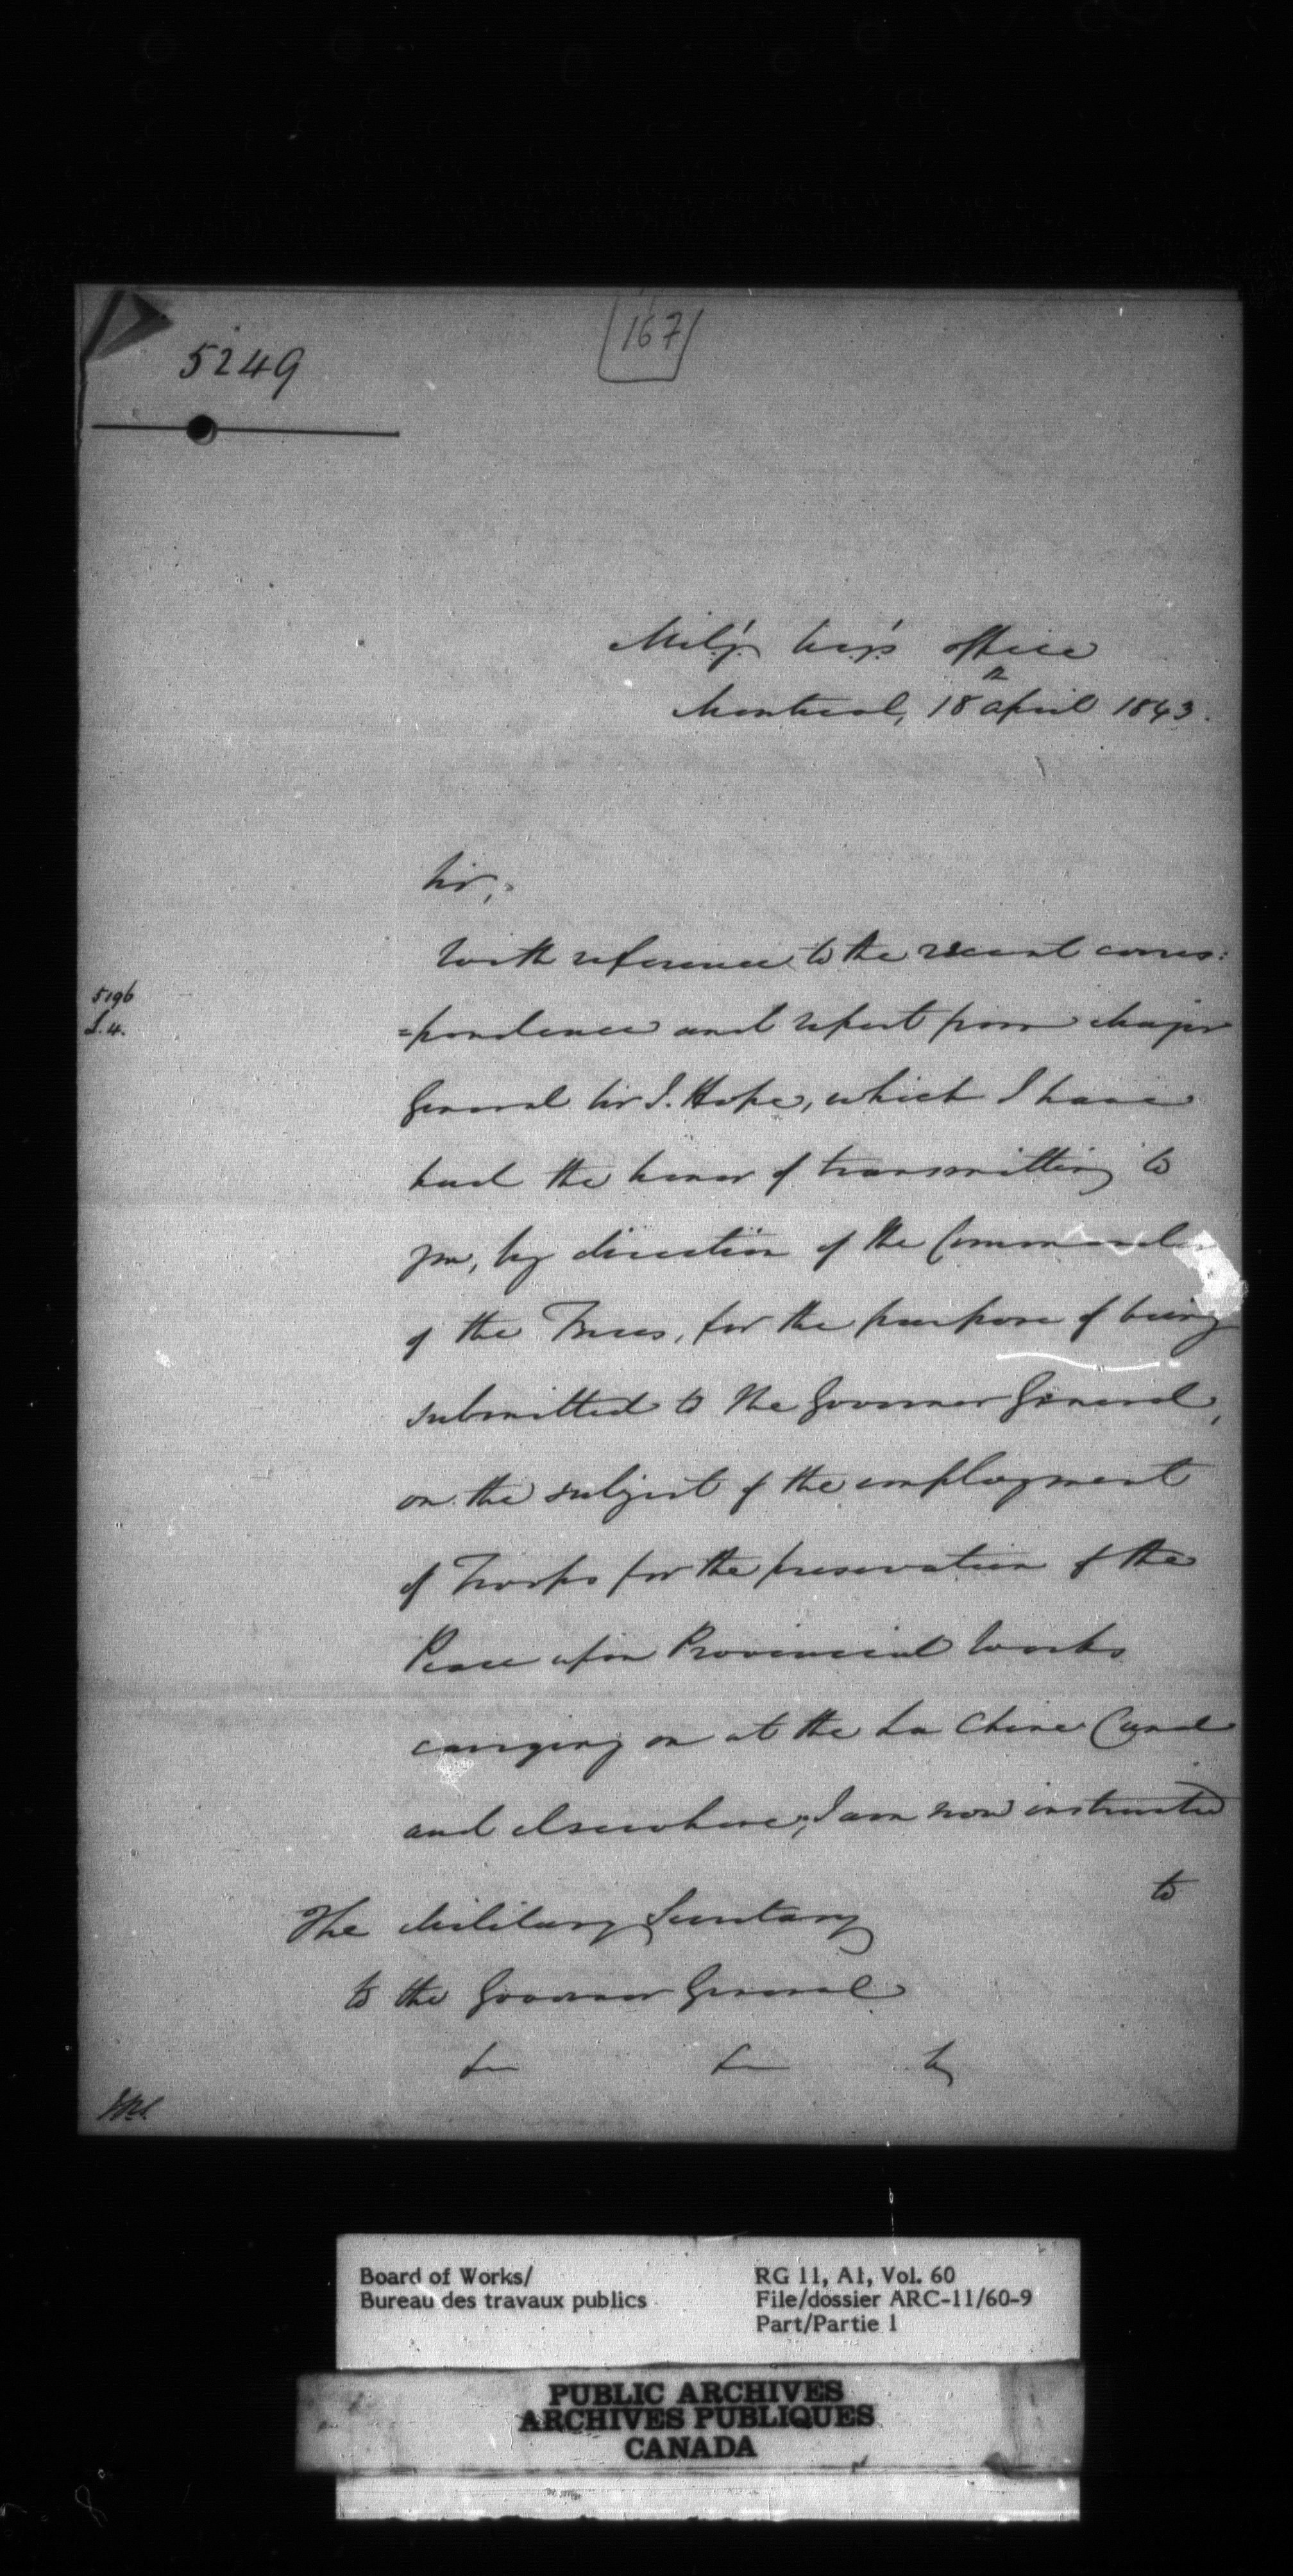 5249
167
Mil'y Sec'y's office
Montreal, 18 April 1843.
Sir,
With reference to the recent corres:
5196
S. 4.
=pondence and report from Major
General Sir J. Hope, which I have
had the honor of transmitting to
you, by direction of the Commander
of the Forces, for the purpose of being
submitted to the Governor General,
on the subject of the employment
of Troops for the preservation of the
Peace upon Provincial Works
carrying on at the La Chine Canal
and elsewhere, I am now instructed
to
The Military Secretary
to the Governor General
Board of Works/
Bureau des travaux publics
RG 11, A1, Vol. 60
File/dossier ARC-11/60-9
Part/Partie 1
PUBLIC ARCHIVES
ARCHIVES PUBLIQUES
CANADA